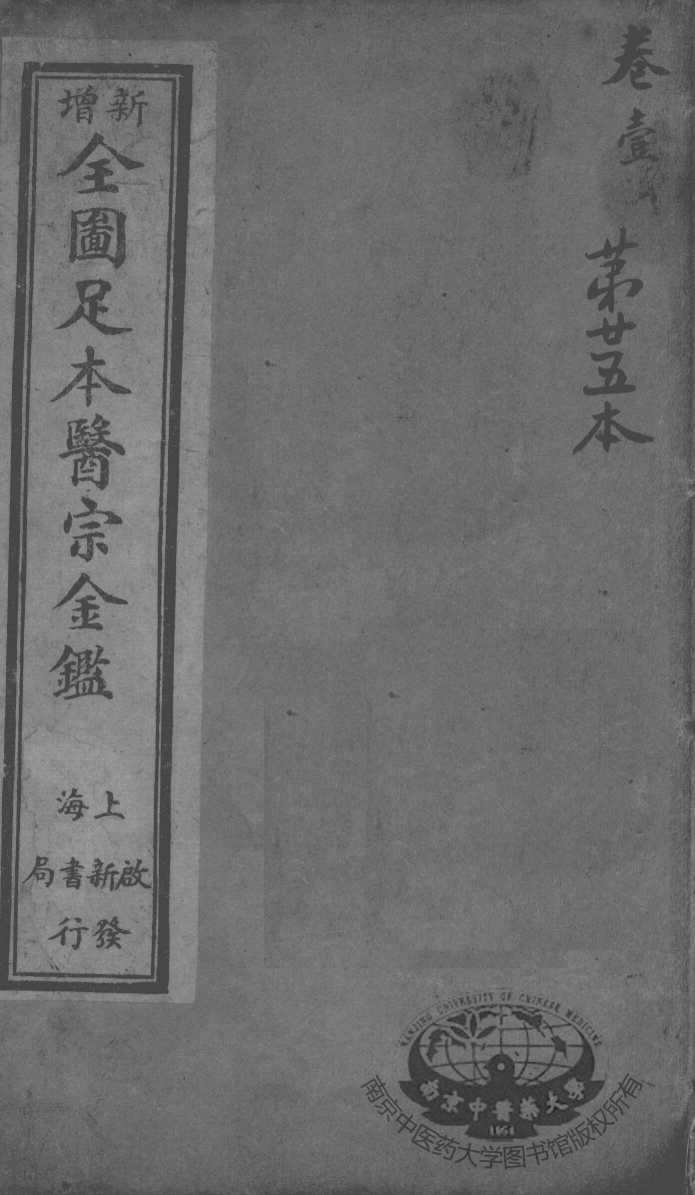 卷壹 第廿五本
新增
全圖足本醫宗金鑑
上海
啟新書局
發行
NANJING UNIVERSITY OF CHINESE MEDICINE
南京中醫藥大學
1954
南京中医药大学图书馆版权所有